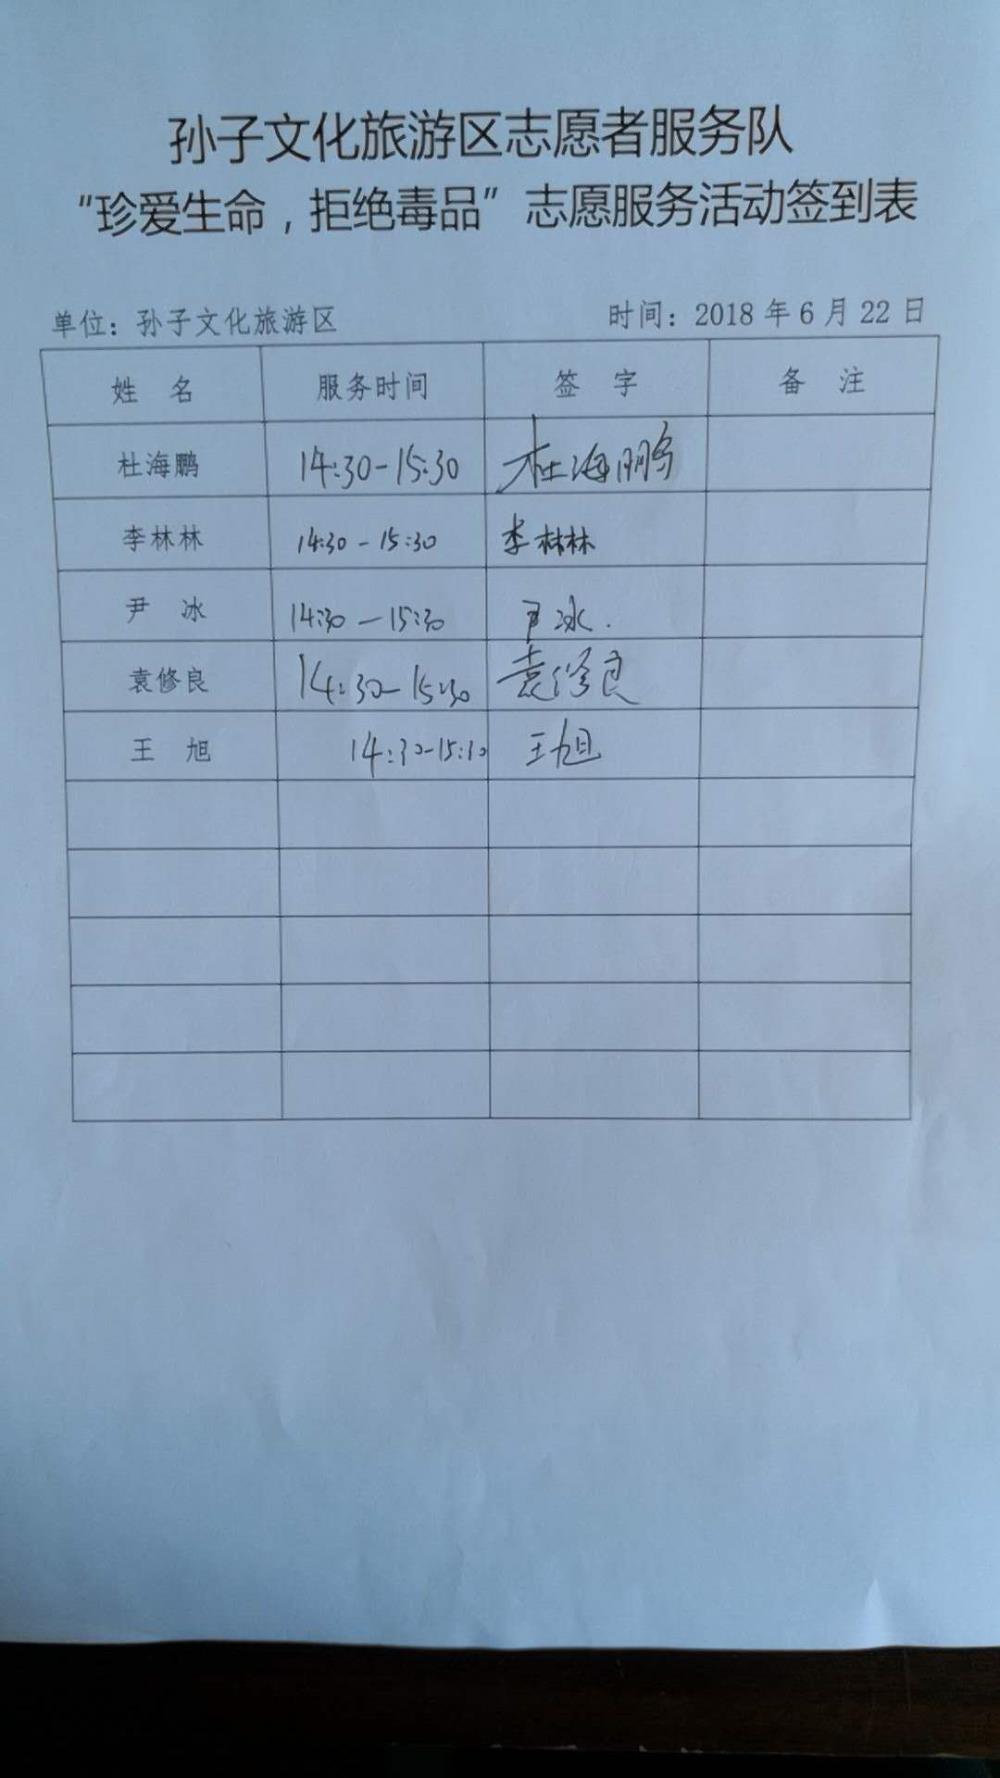 孙子文化旅游区志愿者服务队
“珍爱生命，拒绝毒品”志愿服务活动签到表
单位：孙子文化旅游区 时间：2018年6月22日
姓 名 服务时间 签 字 备 注
杜海鹏 14:30-15:30 杜海鹏
李林林 14:30-15:30 李林林
尹 冰 14:30-15:30 尹冰.
袁修良 14:30-15:30 袁修良
王 旭 14:30-15:30 王旭